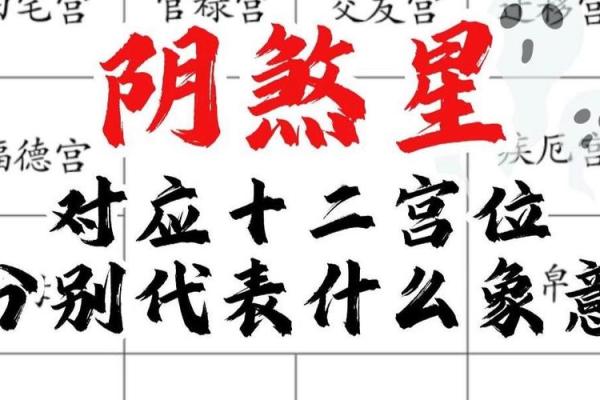 宅宫 官禄宫 交友宫 迁移宫
阴煞星
福德宫 疾厄宫
对应十二宫位
分别代表什么象意
帛